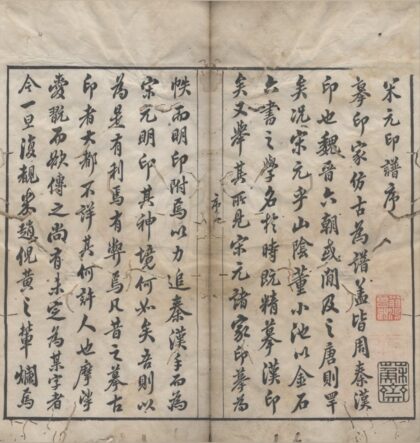 宋元印譜序
摹印家仿古為譜蓋皆周秦漢
印也魏晉六朝或間及之唐則罕
矣況宋元乎山陰董小池以金石
六書之學名於時既精摹漢印
矣又舉其所見宋元諸家印摹為
帙而明印附焉以力追秦漢手而為
宋元明印其神境何如矣吾則以
為是有利焉有弊焉凡昔之摹古
印者大都不詳其何許人也摩挲
愛翫而欲傳之尚有未定為某字者
今一旦復覩米趙倪黃之輩爛焉